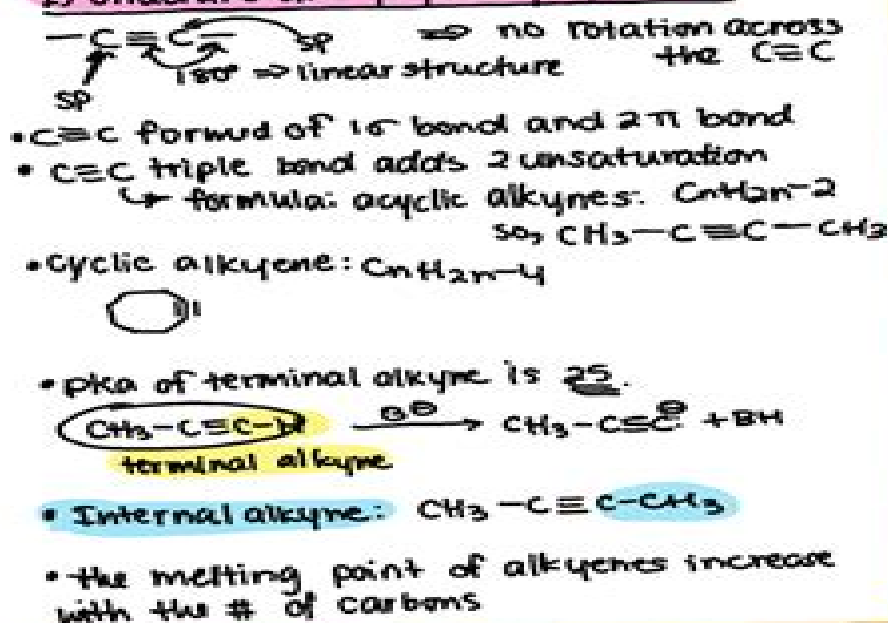 —C≡C— sp ⇒ no rotation across
180° ⇒ linear structure the C≡C
sp
• C≡C formud of 1σ bond and 2π bond
• C≡C triple bond adds 2 unsaturation
↳ formula: acyclic alkynes: CnH2n-2
so, CH3—C≡C—CH3
• cyclic alkyene: CnH2n-4
• pka of terminal alkyne is 25.
CH3-C≡C-H B⊖ → CH3-C≡C:⊖ + BH
terminal alkyne
• Internal alkyne: CH3-C≡C-CH3
• the melting point of alkyenes increase
with the # of carbons